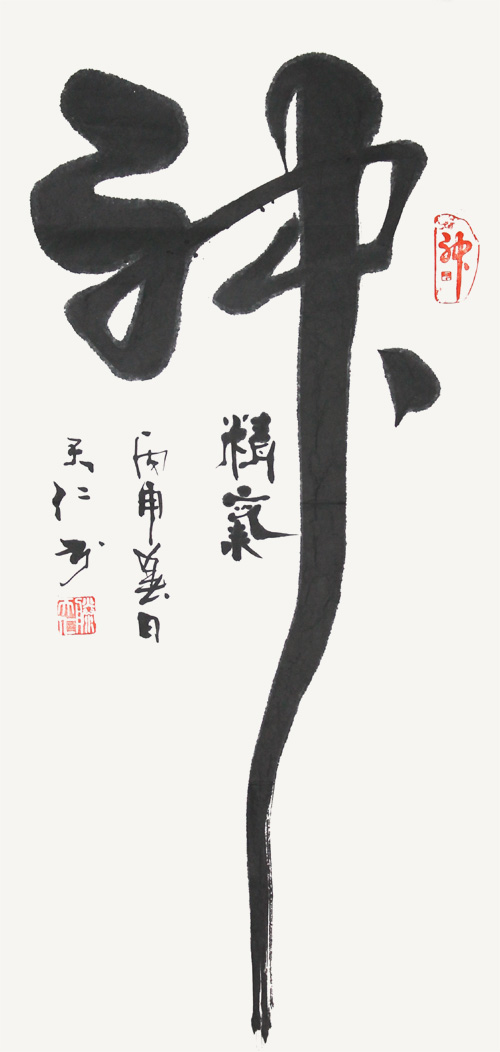 神
精氣
丙申日
仁书
神